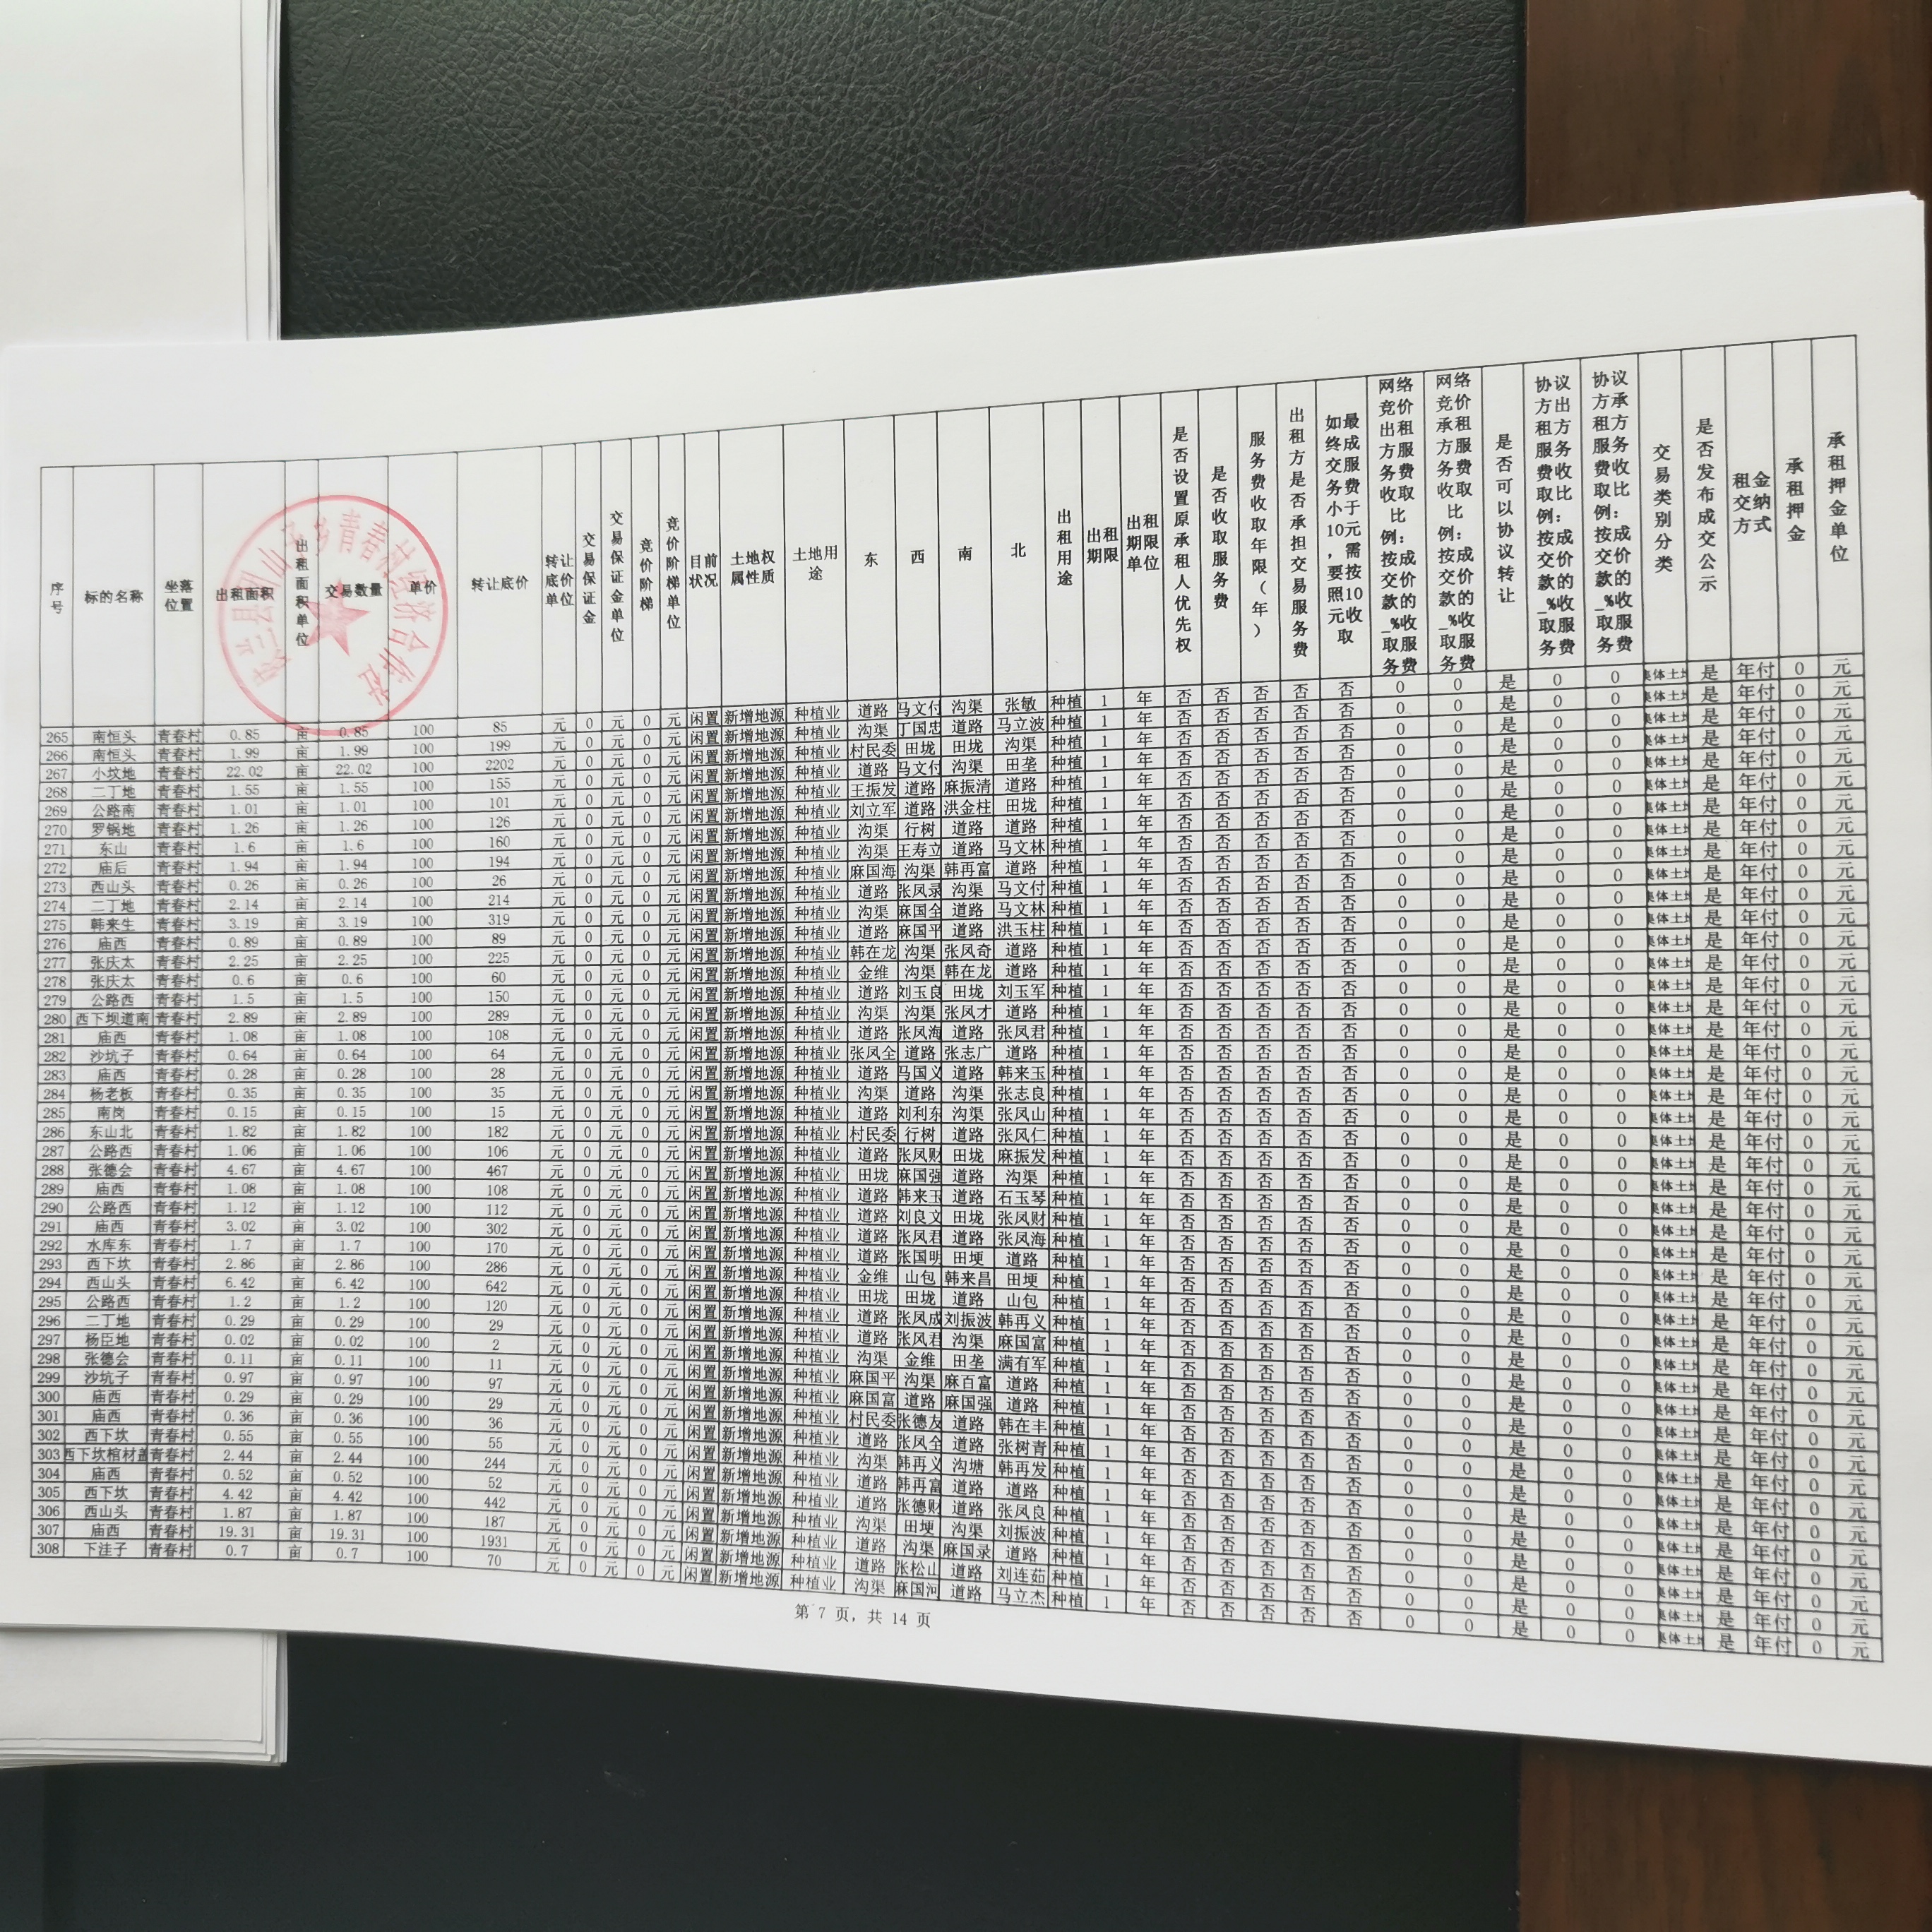 序号 标的名称 坐落位置 出租面积 出租面积单位 交易数量 单价 转让底价 转让底价单位 交易保证金 交易保证金单位 竞价阶梯 竞价阶梯单位 目前状况 土地权属性质 土地用途 东 西 南 北 出租用途 出租期限 出租期限单位 是否设置原承租人优先权 是否收取服务费 服务费收取年限(年) 出租方是否承担交易服务费 如最终成交服务费小于10元,需要按照10元收取 网络竞价出租方服务费收取比例:按成交价款的_%收取服务费 网络竞价承租方服务费收取比例:按成交价款的_%收取服务费 是否可以协议转让 协议方出租方服务费收取比例:按成交价款的_%收取服务费 协议方承租方服务费收取比例:按成交价款的_%收取服务费 交易类别分类 是否发布成交公示 租金交纳方式 承租押金 承租押金单位
265 南恒头 青春村 0.85 亩 0.85 100 85 元 0 元 0 元 闲置 新增地源 种植业 道路 马文付 沟渠 张敏 种植 1 年 否 否 否 否 否 0 0 是 0 0 集体土地 是 年付 0 元
266 南恒头 青春村 1.99 亩 1.99 100 199 元 0 元 0 元 闲置 新增地源 种植业 沟渠 丁国忠 道路 马立波 种植 1 年 否 否 否 否 否 0 0 是 0 0 集体土地 是 年付 0 元
267 小坟地 青春村 22.02 亩 22.02 100 2202 元 0 元 0 元 闲置 新增地源 种植业 村民委 田垅 田垅 沟渠 种植 1 年 否 否 否 否 否 0 0 是 0 0 集体土地 是 年付 0 元
268 二丁地 青春村 1.55 亩 1.55 100 155 元 0 元 0 元 闲置 新增地源 种植业 道路 马文付 沟渠 田垄 种植 1 年 否 否 否 否 否 0 0 是 0 0 集体土地 是 年付 0 元
269 公路南 青春村 1.01 亩 1.01 100 101 元 0 元 0 元 闲置 新增地源 种植业 王振发 道路 麻振清 道路 种植 1 年 否 否 否 否 否 0 0 是 0 0 集体土地 是 年付 0 元
270 罗锅地 青春村 1.26 亩 1.26 100 126 元 0 元 0 元 闲置 新增地源 种植业 刘立军 道路 洪金柱 田垅 种植 1 年 否 否 否 否 否 0 0 是 0 0 集体土地 是 年付 0 元
271 东山 青春村 1.6 亩 1.6 100 160 元 0 元 0 元 闲置 新增地源 种植业 沟渠 行树 道路 道路 种植 1 年 否 否 否 否 否 0 0 是 0 0 集体土地 是 年付 0 元
272 庙后 青春村 1.94 亩 1.94 100 194 元 0 元 0 元 闲置 新增地源 种植业 沟渠 王寿立 道路 马文林 种植 1 年 否 否 否 否 否 0 0 是 0 0 集体土地 是 年付 0 元
273 西山头 青春村 0.26 亩 0.26 100 26 元 0 元 0 元 闲置 新增地源 种植业 麻国海 沟渠 韩再富 道路 种植 1 年 否 否 否 否 否 0 0 是 0 0 集体土地 是 年付 0 元
274 二丁地 青春村 2.14 亩 2.14 100 214 元 0 元 0 元 闲置 新增地源 种植业 道路 张凤录 沟渠 马文付 种植 1 年 否 否 否 否 否 0 0 是 0 0 集体土地 是 年付 0 元
275 韩来生 青春村 3.19 亩 3.19 100 319 元 0 元 0 元 闲置 新增地源 种植业 沟渠 麻国全 道路 马文林 种植 1 年 否 否 否 否 否 0 0 是 0 0 集体土地 是 年付 0 元
276 庙西 青春村 0.89 亩 0.89 100 89 元 0 元 0 元 闲置 新增地源 种植业 道路 麻国平 道路 洪玉柱 种植 1 年 否 否 否 否 否 0 0 是 0 0 集体土地 是 年付 0 元
277 张庆太 青春村 2.25 亩 2.25 100 225 元 0 元 0 元 闲置 新增地源 种植业 韩在龙 沟渠 张凤奇 道路 种植 1 年 否 否 否 否 否 0 0 是 0 0 集体土地 是 年付 0 元
278 张庆太 青春村 0.6 亩 0.6 100 60 元 0 元 0 元 闲置 新增地源 种植业 金维 沟渠 韩在龙 道路 种植 1 年 否 否 否 否 否 0 0 是 0 0 集体土地 是 年付 0 元
279 公路西 青春村 1.5 亩 1.5 100 150 元 0 元 0 元 闲置 新增地源 种植业 道路 刘玉良 田垅 刘玉军 种植 1 年 否 否 否 否 否 0 0 是 0 0 集体土地 是 年付 0 元
280 西下坝道南 青春村 2.89 亩 2.89 100 289 元 0 元 0 元 闲置 新增地源 种植业 沟渠 沟渠 张凤才 道路 种植 1 年 否 否 否 否 否 0 0 是 0 0 集体土地 是 年付 0 元
281 庙西 青春村 1.08 亩 1.08 100 108 元 0 元 0 元 闲置 新增地源 种植业 道路 张凤海 道路 张凤君 种植 1 年 否 否 否 否 否 0 0 是 0 0 集体土地 是 年付 0 元
282 沙坑子 青春村 0.64 亩 0.64 100 64 元 0 元 0 元 闲置 新增地源 种植业 张凤全 道路 张志广 道路 种植 1 年 否 否 否 否 否 0 0 是 0 0 集体土地 是 年付 0 元
283 庙西 青春村 0.28 亩 0.28 100 28 元 0 元 0 元 闲置 新增地源 种植业 道路 马国义 道路 韩来玉 种植 1 年 否 否 否 否 否 0 0 是 0 0 集体土地 是 年付 0 元
284 杨老板 青春村 0.35 亩 0.35 100 35 元 0 元 0 元 闲置 新增地源 种植业 沟渠 道路 沟渠 张志良 种植 1 年 否 否 否 否 否 0 0 是 0 0 集体土地 是 年付 0 元
285 南岗 青春村 0.15 亩 0.15 100 15 元 0 元 0 元 闲置 新增地源 种植业 道路 刘利东 沟渠 张凤山 种植 1 年 否 否 否 否 否 0 0 是 0 0 集体土地 是 年付 0 元
286 东山北 青春村 1.82 亩 1.82 100 182 元 0 元 0 元 闲置 新增地源 种植业 村民委 行树 道路 张风仁 种植 1 年 否 否 否 否 否 0 0 是 0 0 集体土地 是 年付 0 元
287 公路西 青春村 1.06 亩 1.06 100 106 元 0 元 0 元 闲置 新增地源 种植业 道路 张凤财 田垅 麻振发 种植 1 年 否 否 否 否 否 0 0 是 0 0 集体土地 是 年付 0 元
288 张德会 青春村 4.67 亩 4.67 100 467 元 0 元 0 元 闲置 新增地源 种植业 田垅 麻国强 道路 沟渠 种植 1 年 否 否 否 否 否 0 0 是 0 0 集体土地 是 年付 0 元
289 庙西 青春村 1.08 亩 1.08 100 108 元 0 元 0 元 闲置 新增地源 种植业 道路 韩来玉 道路 石玉琴 种植 1 年 否 否 否 否 否 0 0 是 0 0 集体土地 是 年付 0 元
290 公路西 青春村 1.12 亩 1.12 100 112 元 0 元 0 元 闲置 新增地源 种植业 道路 刘良文 田垅 张凤财 种植 1 年 否 否 否 否 否 0 0 是 0 0 集体土地 是 年付 0 元
291 庙西 青春村 3.02 亩 3.02 100 302 元 0 元 0 元 闲置 新增地源 种植业 道路 张凤君 道路 张凤海 种植 1 年 否 否 否 否 否 0 0 是 0 0 集体土地 是 年付 0 元
292 水库东 青春村 1.7 亩 1.7 100 170 元 0 元 0 元 闲置 新增地源 种植业 道路 张国明 田埂 道路 种植 1 年 否 否 否 否 否 0 0 是 0 0 集体土地 是 年付 0 元
293 西下坎 青春村 2.86 亩 2.86 100 286 元 0 元 0 元 闲置 新增地源 种植业 金维 山包 韩来昌 田埂 种植 1 年 否 否 否 否 否 0 0 是 0 0 集体土地 是 年付 0 元
294 西山头 青春村 6.42 亩 6.42 100 642 元 0 元 0 元 闲置 新增地源 种植业 田垅 田垅 道路 山包 种植 1 年 否 否 否 否 否 0 0 是 0 0 集体土地 是 年付 0 元
295 公路西 青春村 1.2 亩 1.2 100 120 元 0 元 0 元 闲置 新增地源 种植业 道路 张凤成 刘振波 韩再义 种植 1 年 否 否 否 否 否 0 0 是 0 0 集体土地 是 年付 0 元
296 二丁地 青春村 0.29 亩 0.29 100 29 元 0 元 0 元 闲置 新增地源 种植业 道路 张风君 沟渠 麻国富 种植 1 年 否 否 否 否 否 0 0 是 0 0 集体土地 是 年付 0 元
297 杨臣地 青春村 0.02 亩 0.02 100 2 元 0 元 0 元 闲置 新增地源 种植业 沟渠 金维 田垄 满有军 种植 1 年 否 否 否 否 否 0 0 是 0 0 集体土地 是 年付 0 元
298 张德会 青春村 0.11 亩 0.11 100 11 元 0 元 0 元 闲置 新增地源 种植业 麻国平 沟渠 麻百富 道路 种植 1 年 否 否 否 否 否 0 0 是 0 0 集体土地 是 年付 0 元
299 沙坑子 青春村 0.97 亩 0.97 100 97 元 0 元 0 元 闲置 新增地源 种植业 麻国富 道路 麻国强 道路 种植 1 年 否 否 否 否 否 0 0 是 0 0 集体土地 是 年付 0 元
300 庙西 青春村 0.29 亩 0.29 100 29 元 0 元 0 元 闲置 新增地源 种植业 村民委 张德友 道路 韩在丰 种植 1 年 否 否 否 否 否 0 0 是 0 0 集体土地 是 年付 0 元
301 庙西 青春村 0.36 亩 0.36 100 36 元 0 元 0 元 闲置 新增地源 种植业 道路 张凤全 道路 张树青 种植 1 年 否 否 否 否 否 0 0 是 0 0 集体土地 是 年付 0 元
302 西下坎 青春村 0.55 亩 0.55 100 55 元 0 元 0 元 闲置 新增地源 种植业 沟渠 韩再义 沟塘 韩再发 种植 1 年 否 否 否 否 否 0 0 是 0 0 集体土地 是 年付 0 元
303 西下坎棺材盖 青春村 2.44 亩 2.44 100 244 元 0 元 0 元 闲置 新增地源 种植业 道路 韩再富 道路 道路 种植 1 年 否 否 否 否 否 0 0 是 0 0 集体土地 是 年付 0 元
304 庙西 青春村 0.52 亩 0.52 100 52 元 0 元 0 元 闲置 新增地源 种植业 道路 张德财 道路 张凤良 种植 1 年 否 否 否 否 否 0 0 是 0 0 集体土地 是 年付 0 元
305 西下坎 青春村 4.42 亩 4.42 100 442 元 0 元 0 元 闲置 新增地源 种植业 沟渠 田埂 沟渠 刘振波 种植 1 年 否 否 否 否 否 0 0 是 0 0 集体土地 是 年付 0 元
306 西山头 青春村 1.87 亩 1.87 100 187 元 0 元 0 元 闲置 新增地源 种植业 道路 沟渠 麻国录 道路 种植 1 年 否 否 否 否 否 0 0 是 0 0 集体土地 是 年付 0 元
307 庙西 青春村 19.31 亩 19.31 100 1931 元 0 元 0 元 闲置 新增地源 种植业 道路 张松山 道路 刘连茹 种植 1 年 否 否 否 否 否 0 0 是 0 0 集体土地 是 年付 0 元
308 下洼子 青春村 0.7 亩 0.7 100 70 元 0 元 0 元 闲置 新增地源 种植业 沟渠 麻国河 道路 马立杰 种植 1 年 否 否 否 否 否 0 0 是 0 0 集体土地 是 年付 0 元
第 7 页, 共 14 页